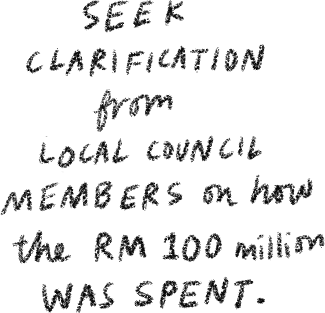 SEEK
CLARIFICATION
from
LOCAL COUNCIL
MEMBERS on how
the RM 100 million
WAS SPENT.